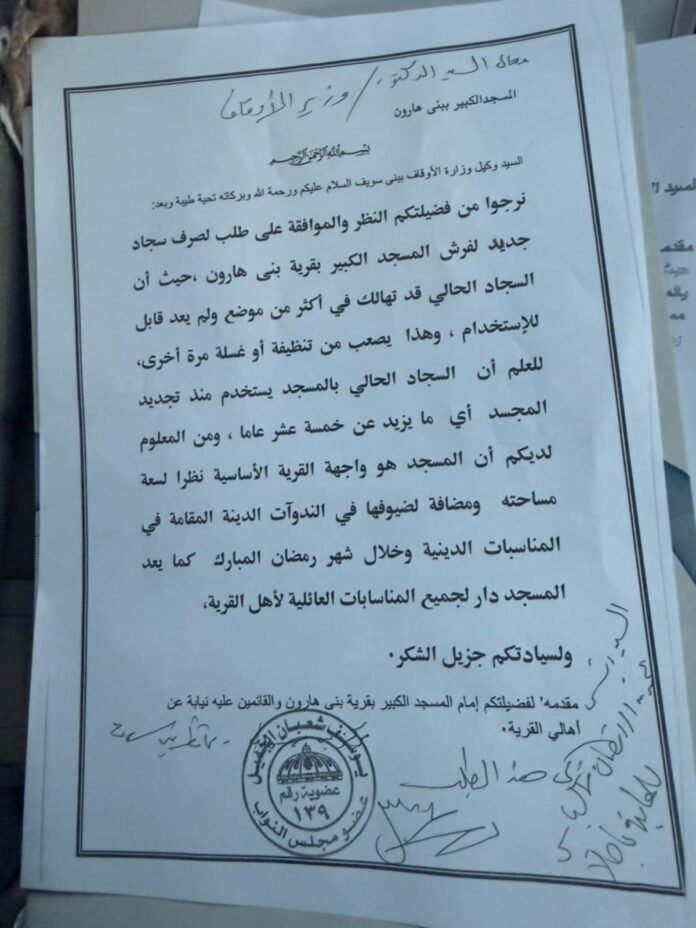 معالى السيد الدكتور / وزير الأوقاف
المسجدالكبير ببنى هارون
بسم الله الرحمن الرحيم
السيد وكيل وزارة الأوقاف ببنى سويف السلام عليكم ورحمة الله وبركاته تحية طيبة وبعد:
نرجوا من فضيلتكم النظر والموافقة على طلب لصرف سجاد
جديد لفرش المسجد الكبير بقرية بنى هارون ،حيث أن
السجاد الحالي قد تهالك في أكثر من موضع ولم يعد قابل
للإستخدام ، وهذا يصعب من تنظيفة أو غسلة مرة أخرى،
للعلم أن السجاد الحالي بالمسجد يستخدم منذ تجديد
المجسد أي ما يزيد عن خمسة عشر عاما ، ومن المعلوم
لديكم أن المسجد هو واجهة القرية الأساسية نظرا لسعة
مساحته ومضافة لضيوفها في الندوآت الدينة المقامة في
المناسبات الدينية وخلال شهر رمضان المبارك كما يعد
المسجد دار لجميع المناسابات العائلية لأهل القرية،
ولسيادتكم جزيل الشكر.
مقدمه' لفضيلتكم إمام المسجد الكبير بقرية بنى هارون والقائمين عليه نيابة عن
أهالي القرية.
هذا الطلب
يوسف شعبان
عضوية رقم
١٣٩
عضو مجلس النواب
السيد
لسيد ا
مقدمـ
حيث